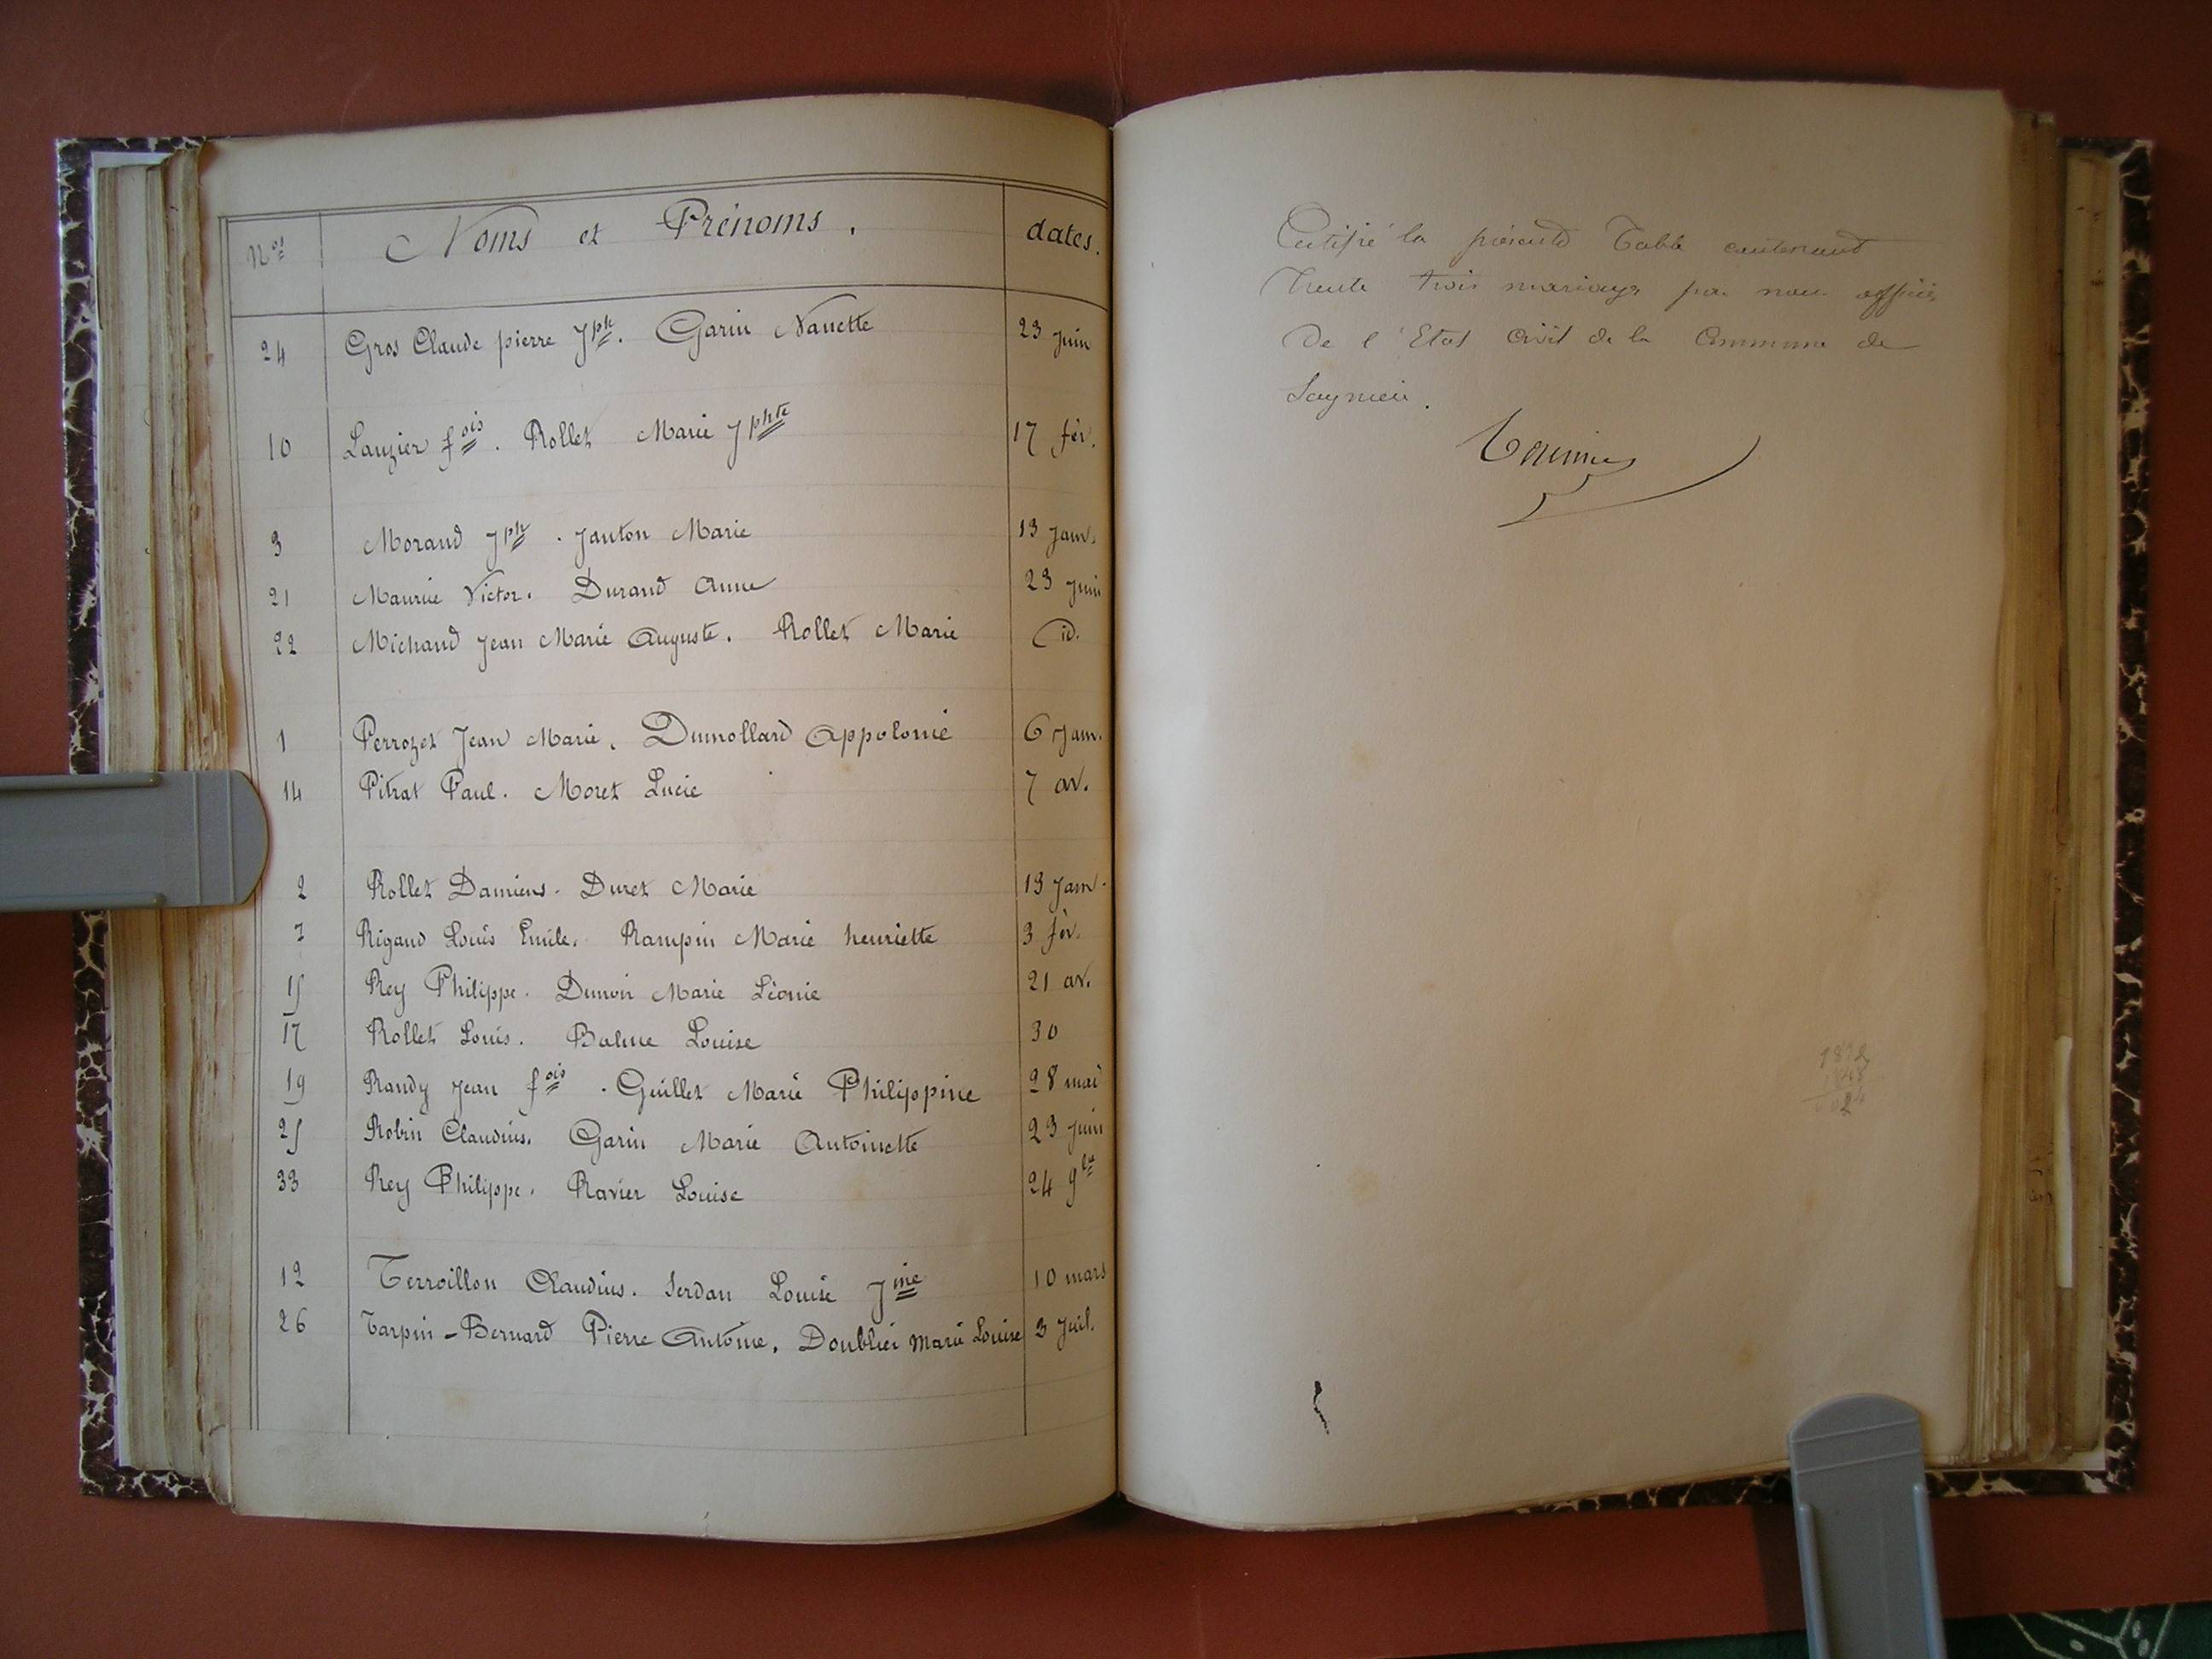 Nos Noms et Prénoms. dates.
24 Gros Claude pierre Jph. Garin Nanette 23 Juin
10 Lauzier fois. Rollet Marie Jphte 17 fév.
3 Morand Jph. Janton Marie 13 Janv.
21 Maurice Victor. Durand Anne 23 Juin
22 Michaud Jean Marie Auguste. Rollet Marie id.
1 Perrozet Jean Marie. Dumollard Appolonie 6 Janv.
14 Pitrat Paul. Moret Lucie 7 av.
2 Rollet Damiens. Duret Marie 13 Janv.
7 Rigaud Louis Emile. Rampin Marie henriette 3 fév.
15 Rey Philippe. Dunoir Marie Léonie 21 av.
17 Rollet Louis. Balme Louise 30
19 Randy Jean fois. Guillet Marie Philippine 28 mai
25 Robin Claudius. Garin Marie Antoinette 23 Juin
33 Rey Philippe. Ravier Louise 24 9bre
12 Terroillon Claudius. Serdan Louise Jine 10 mars
26 Tarpin-Bernard Pierre Antoine. Doublier Marie Louise 3 Juil.
Certifié la présente Table contenant
Trente trois mariages par nous officier
De l'Etat Civil de la Commune de